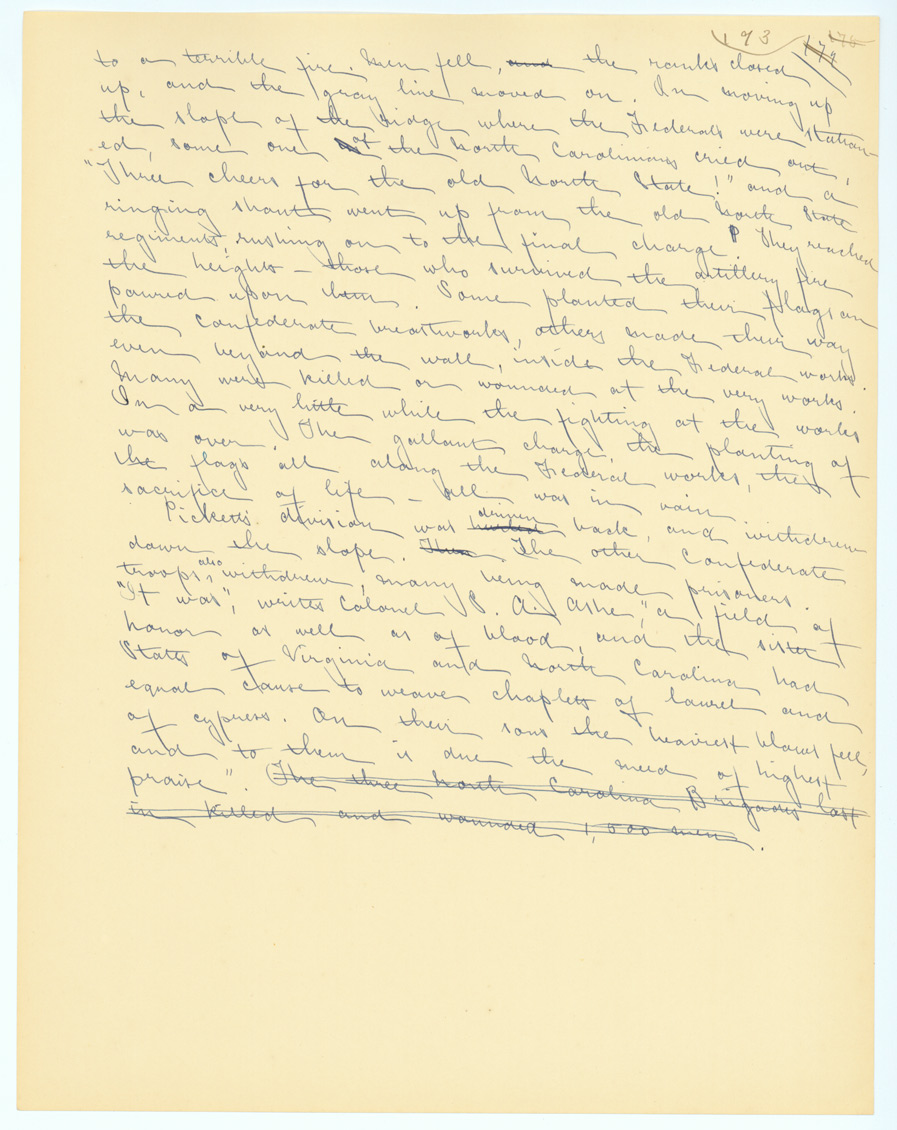 193 174 176
to a terrible fire. Men fell, and the ranks closed
up, and the gray line moved on. In moving up
the slope of the ridge where the Federals were station-
ed, some one of the North Carolinians cried out,
"Three cheers for the old North State!" and a
ringing shout went up from the old North State
regiments, rushing on to the final charge. They reached
the heights – those who survived the artillery fire
poured upon them. Some planted their flags on
the Confederate breastworks, others made their way
even beyond the wall, inside the Federal works.
Many were killed or wounded at the very works.
In a very little while the fighting at the works
was over. The gallant charge, the planting of
the flags all along the Federal works, the
sacrifice of life – all was in vain.
Pickett's division was driven back, and withdrew
down the slope. Then The other Confederate
troops also withdrew, many being made prisoners.
"It was", writes Colonel S. A. Ashe, "a field of
honor as well as of blood, and the sister
States of Virginia and North Carolina had
equal cause to weave chaplets of laurel and
of cypress. On their sons the heaviest blows fell,
and to them is due the meed of highest
praise". (The three North Carolina Brigades lost
in killed and wounded 1,500 men.